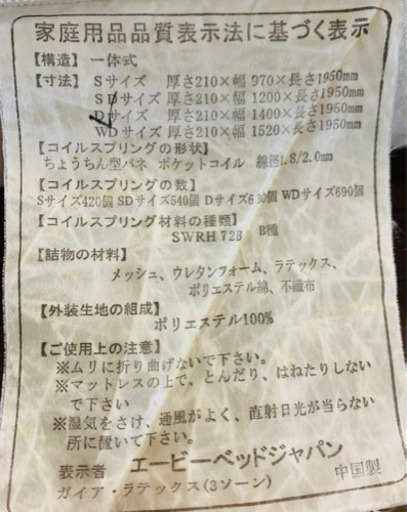 家庭用品品質表示法に基づく表示
【構造】 一体式
【寸法】 Sサイズ 厚さ210×幅 970×長さ1950㎜
SDサイズ 厚さ210×幅 1200×長さ1950㎜
Dサイズ 厚さ210×幅 1400×長さ1950㎜
WDサイズ 厚さ210×幅 1520×長さ1950㎜
【コイルスプリングの形状】
ちょうちん型バネ ポケットコイル 線径1.8/2.0㎜
【コイルスプリングの数】
Sサイズ420個 SDサイズ540個 Dサイズ630個 WDサイズ690個
【コイルスプリング材料の種類】
SWRH 72B B種
【詰物の材料】
メッシュ、ウレタンフォーム、ラテックス、
ポリエステル綿、不織布
【外装生地の組成】
ポリエステル100%
【ご使用上の注意】
※ムリに折り曲げないで下さい。
※マットレスの上で、とんだり、はねたりしない
で下さい
※湿気をさけ、通風がよく、直射日光が当らない
所に置いて下さい。
表示者 エービーベッドジャパン
ガイア・ラテックス(3ソーン) 中国製